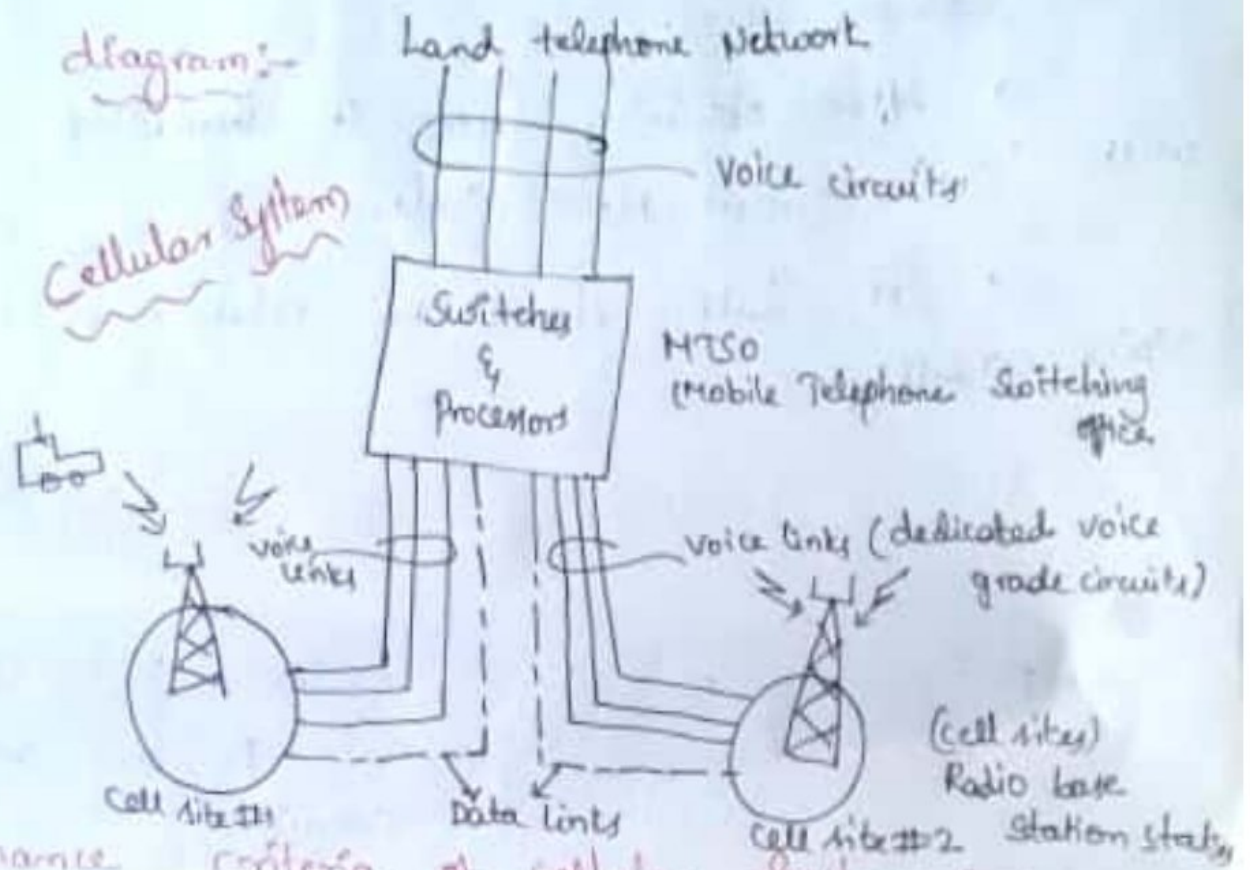 diagram:-
Land telephone Network
Voice circuits
Cellular System
Switches
&
Processors
MTSO
(Mobile Telephone Switching
office
voice
links
Voice links (dedicated voice
grade circuits)
(cell sites)
Radio base
Station
Cell site #1
Data links
Cell site #2
criteria of